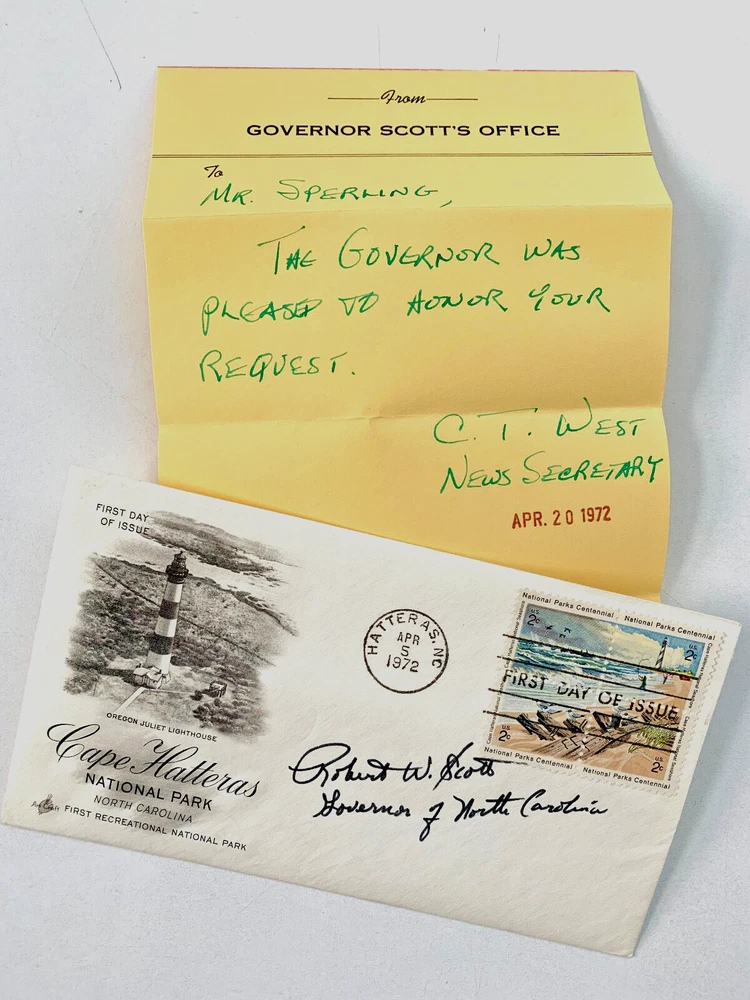 From
GOVERNOR SCOTT'S OFFICE
To
MR. SPERLING,
THE GOVERNOR WAS
PLEASED TO HONOR YOUR
REQUEST.
C. T. WEST
NEWS SECRETARY
APR. 20 1972
FIRST DAY
OF ISSUE
OREGON JULIET LIGHTHOUSE
Cape Hatteras
NATIONAL PARK
NORTH CAROLINA
ArtCraft FIRST RECREATIONAL NATIONAL PARK
HATTERAS, NC
APR
5
1972
National Parks Centennial National Parks Centennial
U.S.
2c
U.S.
2c
FIRST DAY OF ISSUE
U.S.
2c
U.S.
2c
National Parks Centennial National Parks Centennial
Robert W. Scott
Governor of North Carolina